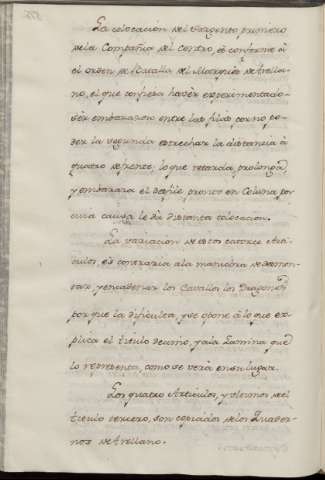 La colocación del Sargento primero
de la Compañia del Centro, es conforme à
el orden de Cavalla del Marqués de Arella-
no, el que confiesa haver experimentado
ser embarazoso entre las filas por no po-
der la segunda estrechar la distancia à
quatro de frente, lo que retarda, prolonga,
y embaraza el desfile pronto en Coluna por
cuia causa le dà distinta colocacion.
La variacion de estos catorce Arti-
culos, es contraria ala maniobra de desmon-
tar y encadenar los Cavallos los Dragones,
por que la dificulta, y se opone à lo que ex-
plica el titulo decimo, y ala Lamina que
lo representa, como se verà en su lugar.
Los quatro Articulos, y ultimos del
titulo tercero, son copiados de los Quader-
nos de Arellano.